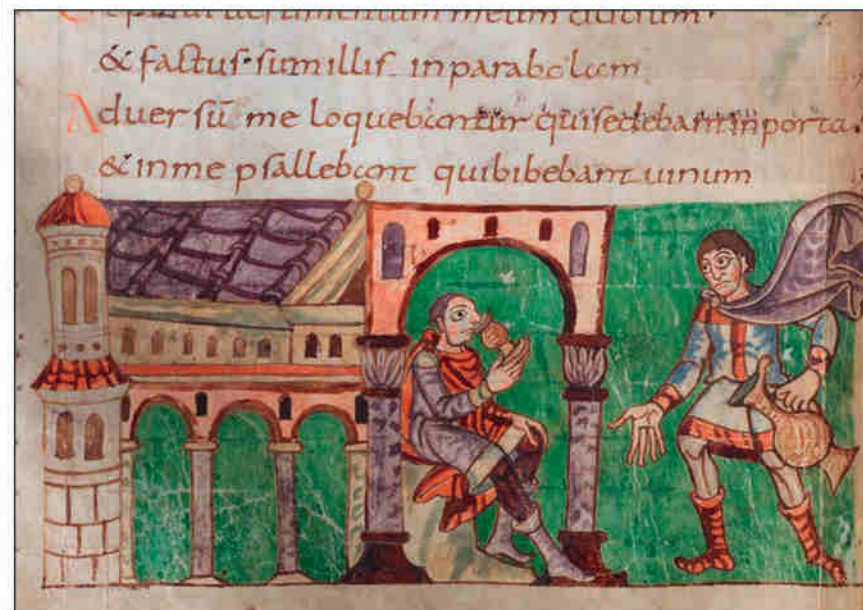 uestimentum meum cilicium·
& factus· sum illis inparabolam
Aduersū me loquebantur quisedebant inporta
& inme psallebant quibibebant uinum